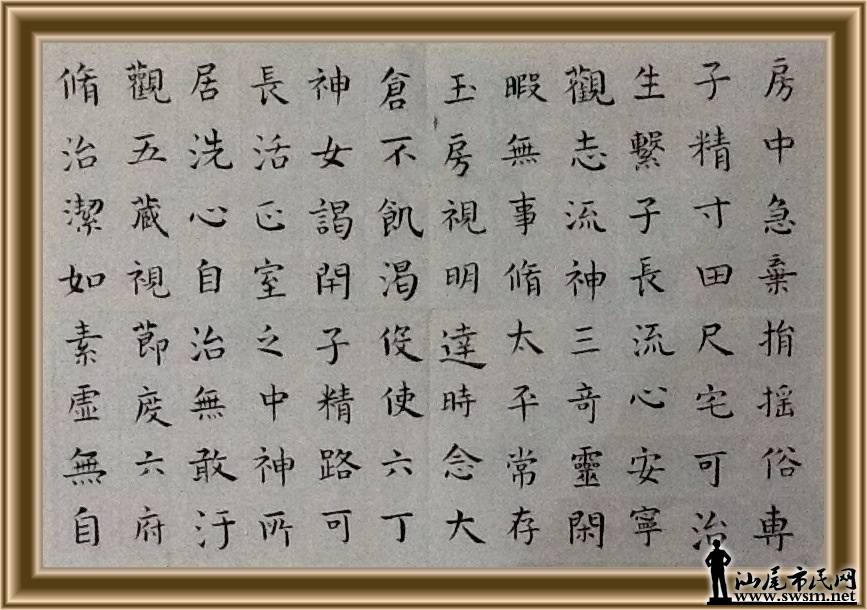 房中急棄捐搖俗専
子精寸田尺宅可治
生繫子長流心安寧
觀志流神三奇靈閑
暇無事脩太平常存
玉房視明達時念大
倉不飢渴役使六丁
神女謁閇子精路可
長活正室之中神所
居洗心自治無敢汙
觀五藏視節度六府
脩治潔如素虛無自
汕尾市民网
www.swsm.net